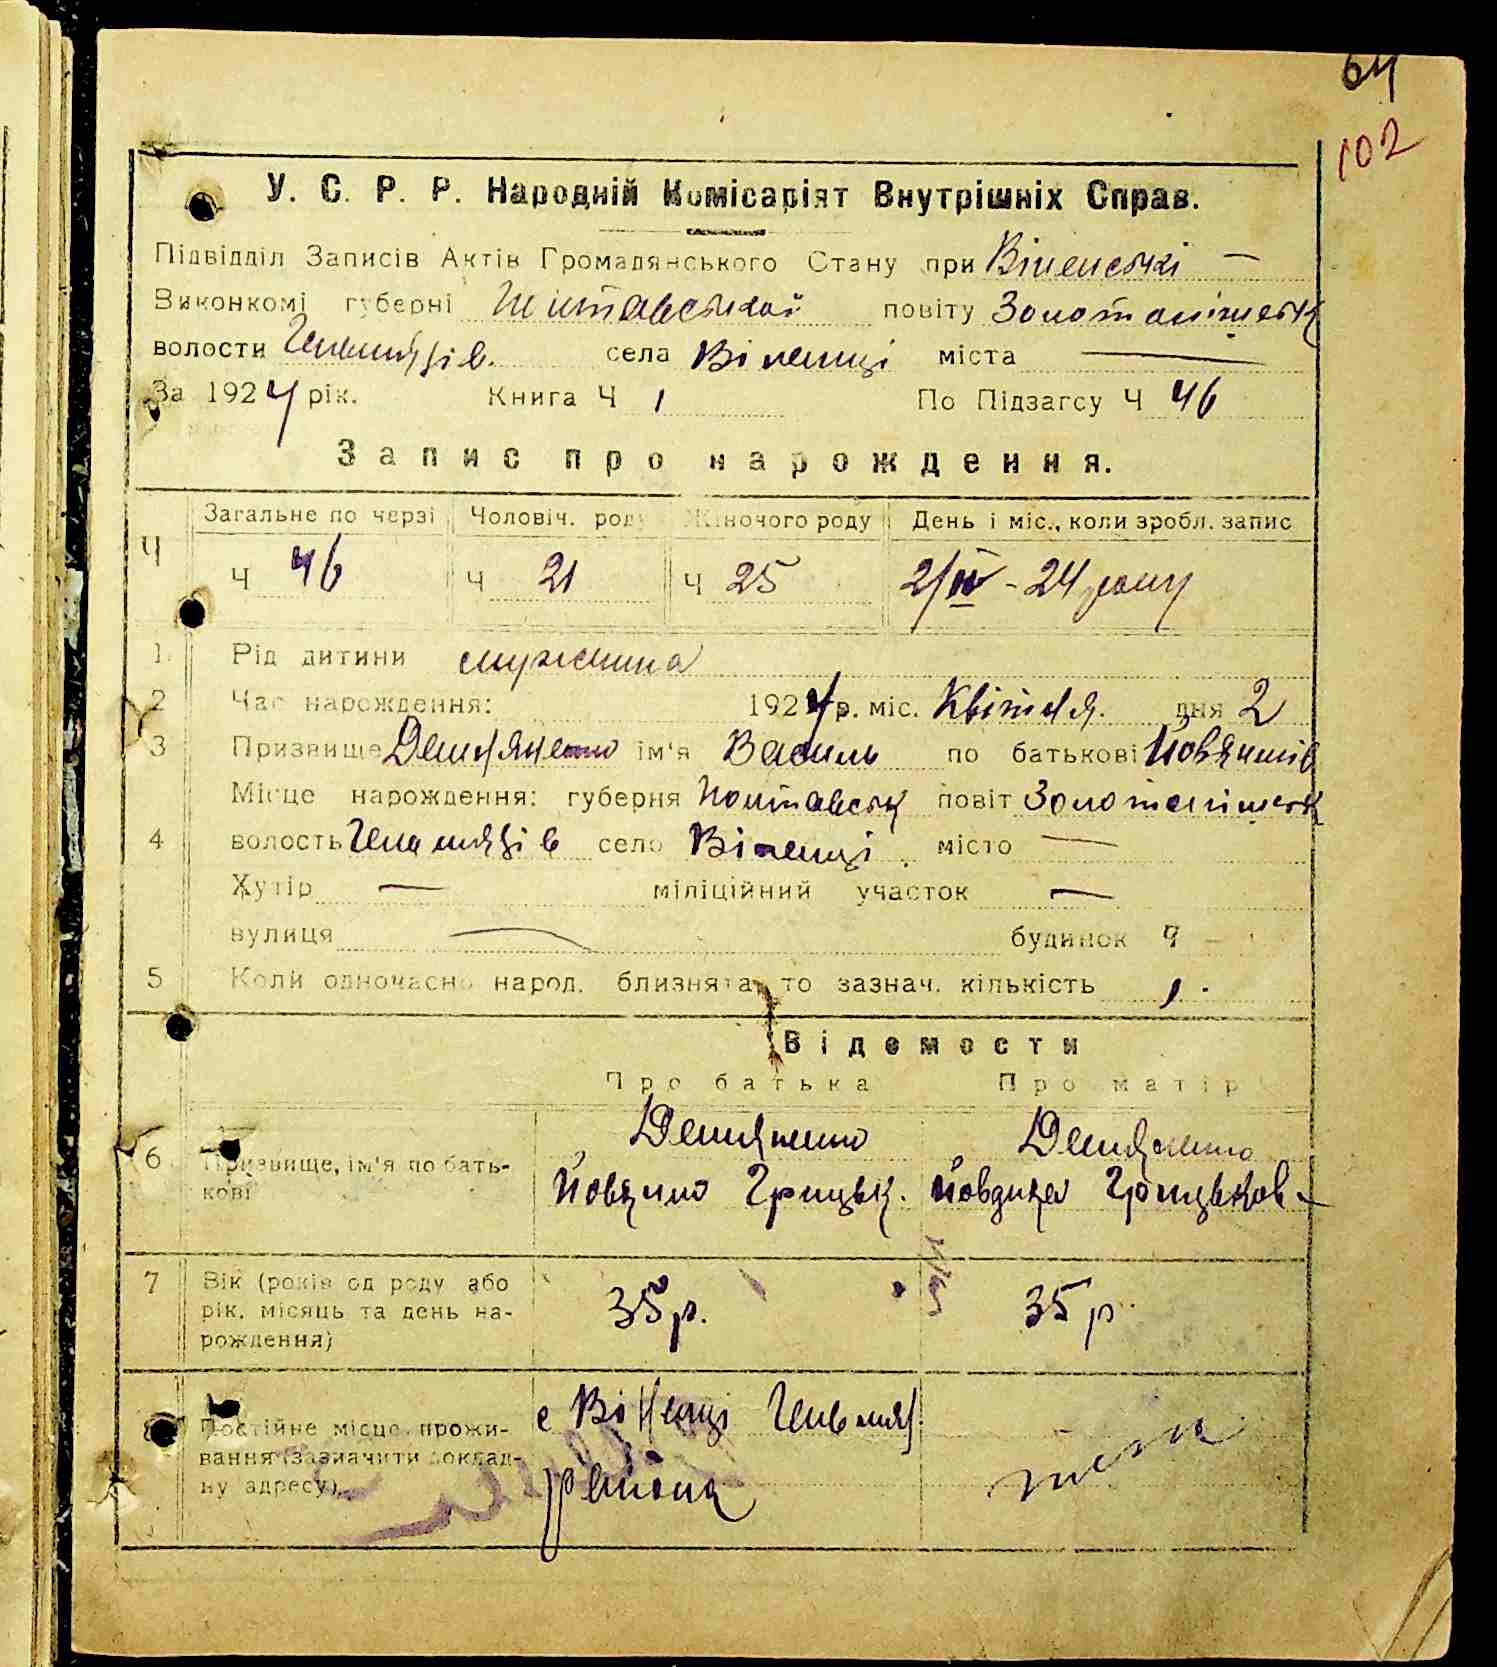 64
102
У. С. Р. Р. Народній Комісаріят Внутрішніх Справ.
Підвідділ Записів Актів Громадянського Стану при Віненські —
Виконкомі губерні Полтавській повіту Золотонішськ
волости села Віненці міста —
За 1924 рік. Книга Ч 1 По Підзагсу Ч 46
Запис про нарождення.
Загальне по черзі Чоловіч. роду Жіночого роду День і міс., коли зробл. запис
Ч Ч 46 Ч 21 Ч 25 2/IV - 24 року
1 Рід дитини мужчина
2 Час нарождення: 1924 р. міс. Квітня. дня 2
3 Призвище Демяненко ім'я Василь по батькові
Місце нарождення: губерня Полтавськ повіт Золотонішськ
4 волость село Віненці місто —
Хутір — міліційний участок —
вулиця — будинок Ч —
5 Коли одночасно народ. близнята, то зазнач. кількість 1.
Відомости
Про батька Про матір
Демяненко Демяненко
6 Призвище, ім'я по бать-
кові
Грицьк. Йовдоха Грицьков —
7 Вік (років од роду або
рік, місяць та день на-
рождення)
35 р. 35 р
Постійне місце прожи-
вання (зазначити доклад-
ну адресу)
с Віненці
району